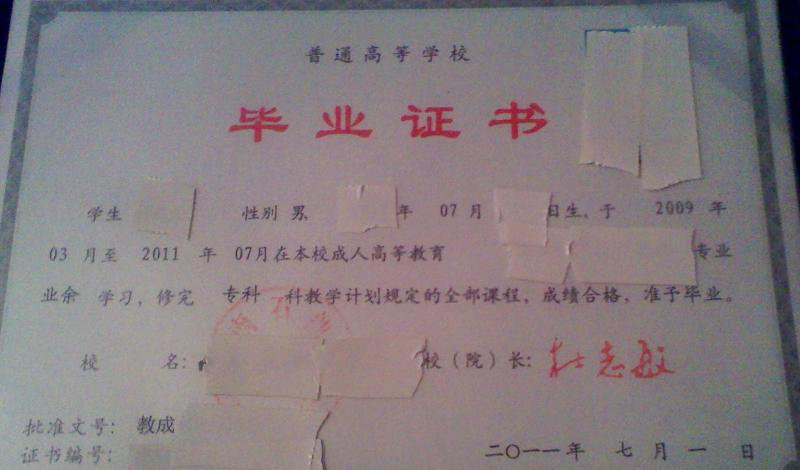 普通高等学校
毕业证书
学生 性别 男, 年 07 月 日生, 于 2009 年
03 月至 2011 年 07月在本校成人高等教育 专业
业余 学习, 修完 专科 科教学计划规定的全部课程, 成绩合格, 准予毕业。
校 名: 校(院)长: 杜志敏
批准文号: 教成
证书编号: 二〇一一年 七 月 一 日